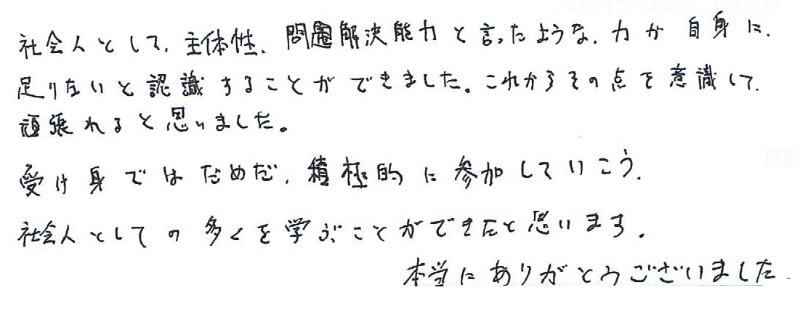 社会人として、主体性、問題解決能力と言ったような、力が自身に、
足りないと認識することができました。これからその点を意識して、
頑張れると思いました。
受け身ではだめだ、積極的に参加していこう。
社会人としての多くを学ぶことができたと思います。
本当にありがとうございました。